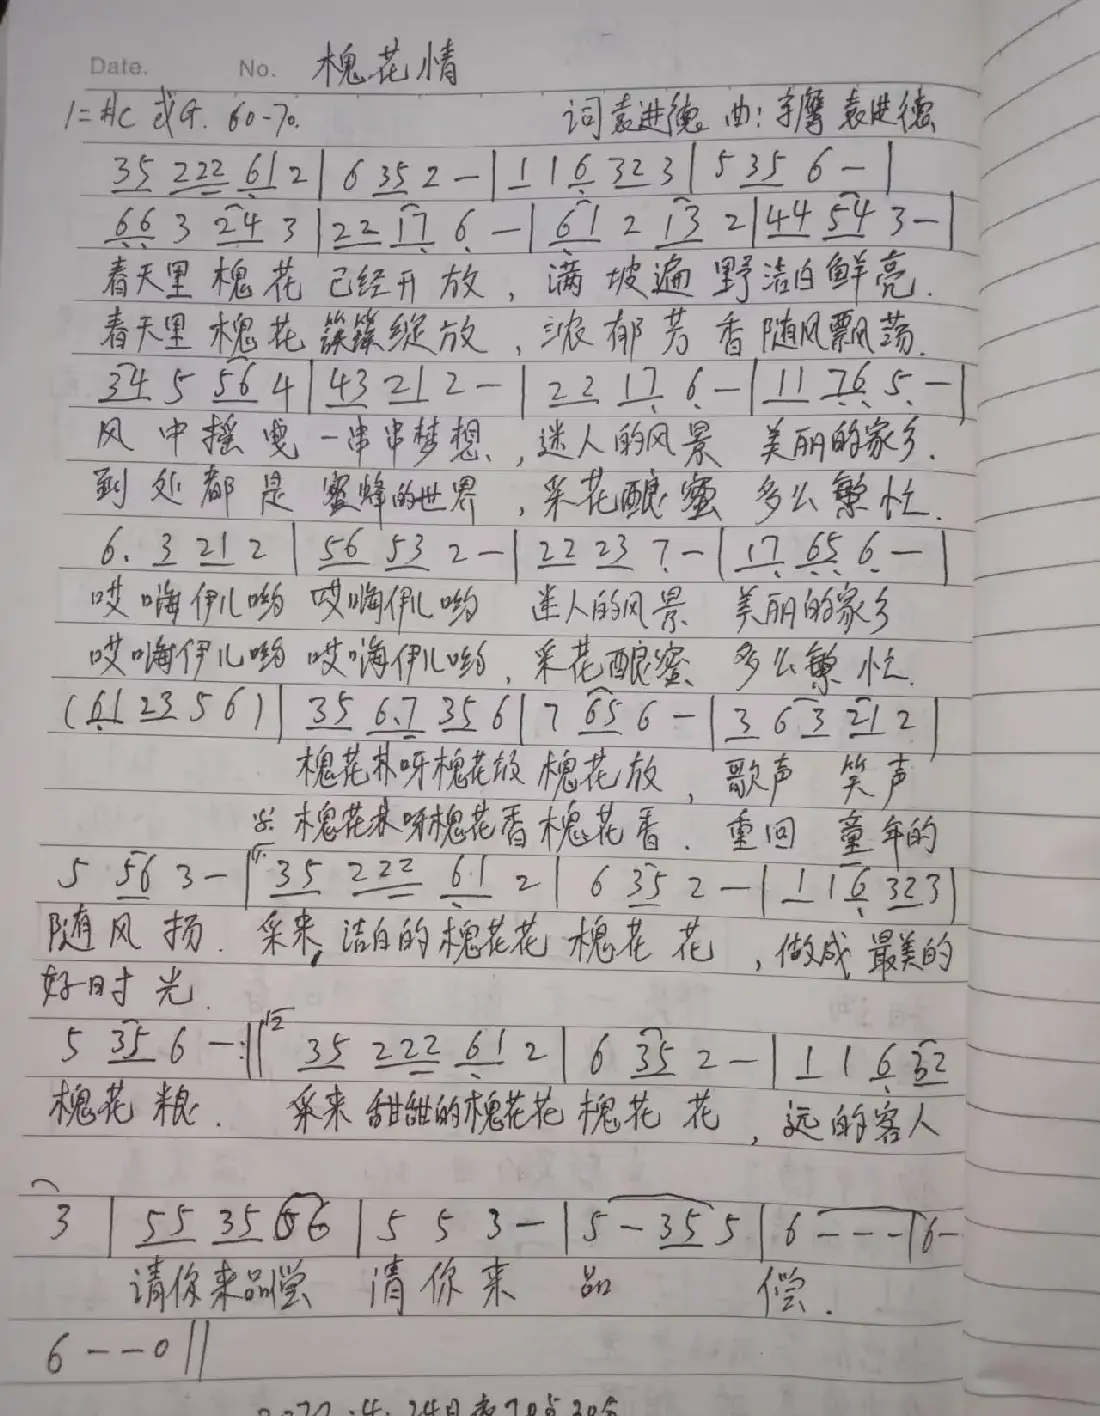 Date. No. 槐花情
1=#C 或G. 60-70. 词袁进德 曲:李摩 袁进德
35 222 61 2 | 6 35 2 - | 1 1 6 32 3 | 5 35 6 - |
66 3 24 3 | 22 17 6 - | 61 2 13 2 | 44 54 3 - |
春天里 槐 花 已经开 放 , 满 坡遍 野洁白鲜亮.
春天里 槐花 簇簇绽放 , 浓郁芳香随风飘荡.
34 5 56 4 | 43 21 2 - | 22 17 6 - | 11 76 5 - |
风 中 摇 曳 一串串梦想、, 迷人的风景 美丽的家乡.
到 处 都 是 蜜蜂的世界 , 采花酿蜜 多么繁忙.
6. 3 21 2 | 56 53 2 - | 22 23 7 - | 17 65 6 - |
哎嗨伊儿哟 哎嗨伊儿哟 迷人的风景 美丽的家乡
哎嗨伊儿哟 哎嗨伊儿哟, 采花酿蜜 多么繁忙.
(61 23 5 6) | 35 6.7 35 6 | 7 65 6 - | 3 6 3 21 2 |
槐花林呀槐花放 槐花放 , 歌声 笑声
槐花林呀槐花香 槐花香. 重回 童年的
5 56 3 - | 35 222 61 2 | 6 35 2 - | 1 1 6 323 |
随风 扬. 采来, 洁白的槐花花 槐花 花 , 做成 最美的
好时光.
5 35 6 - :|| 35 222 61 2 | 6 35 2 - | 1 1 6 32
槐花 粮. 采来 甜甜的槐花花 槐花 花 , 远的客人
3 | 55 35 66 | 5 5 3 - | 5 - 35 5 | 6 - - - | 6 -
请你来品尝 请你来 品 偿.
6 - - 0 ||